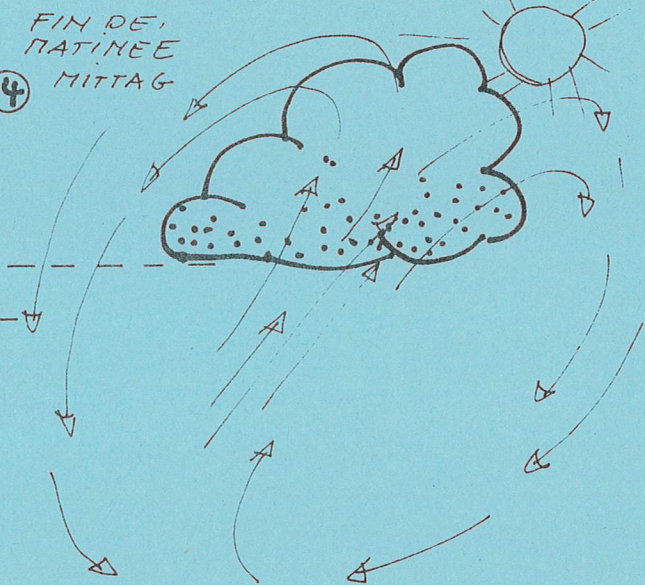 FIN DE,
MATINEE
MITTAG
4